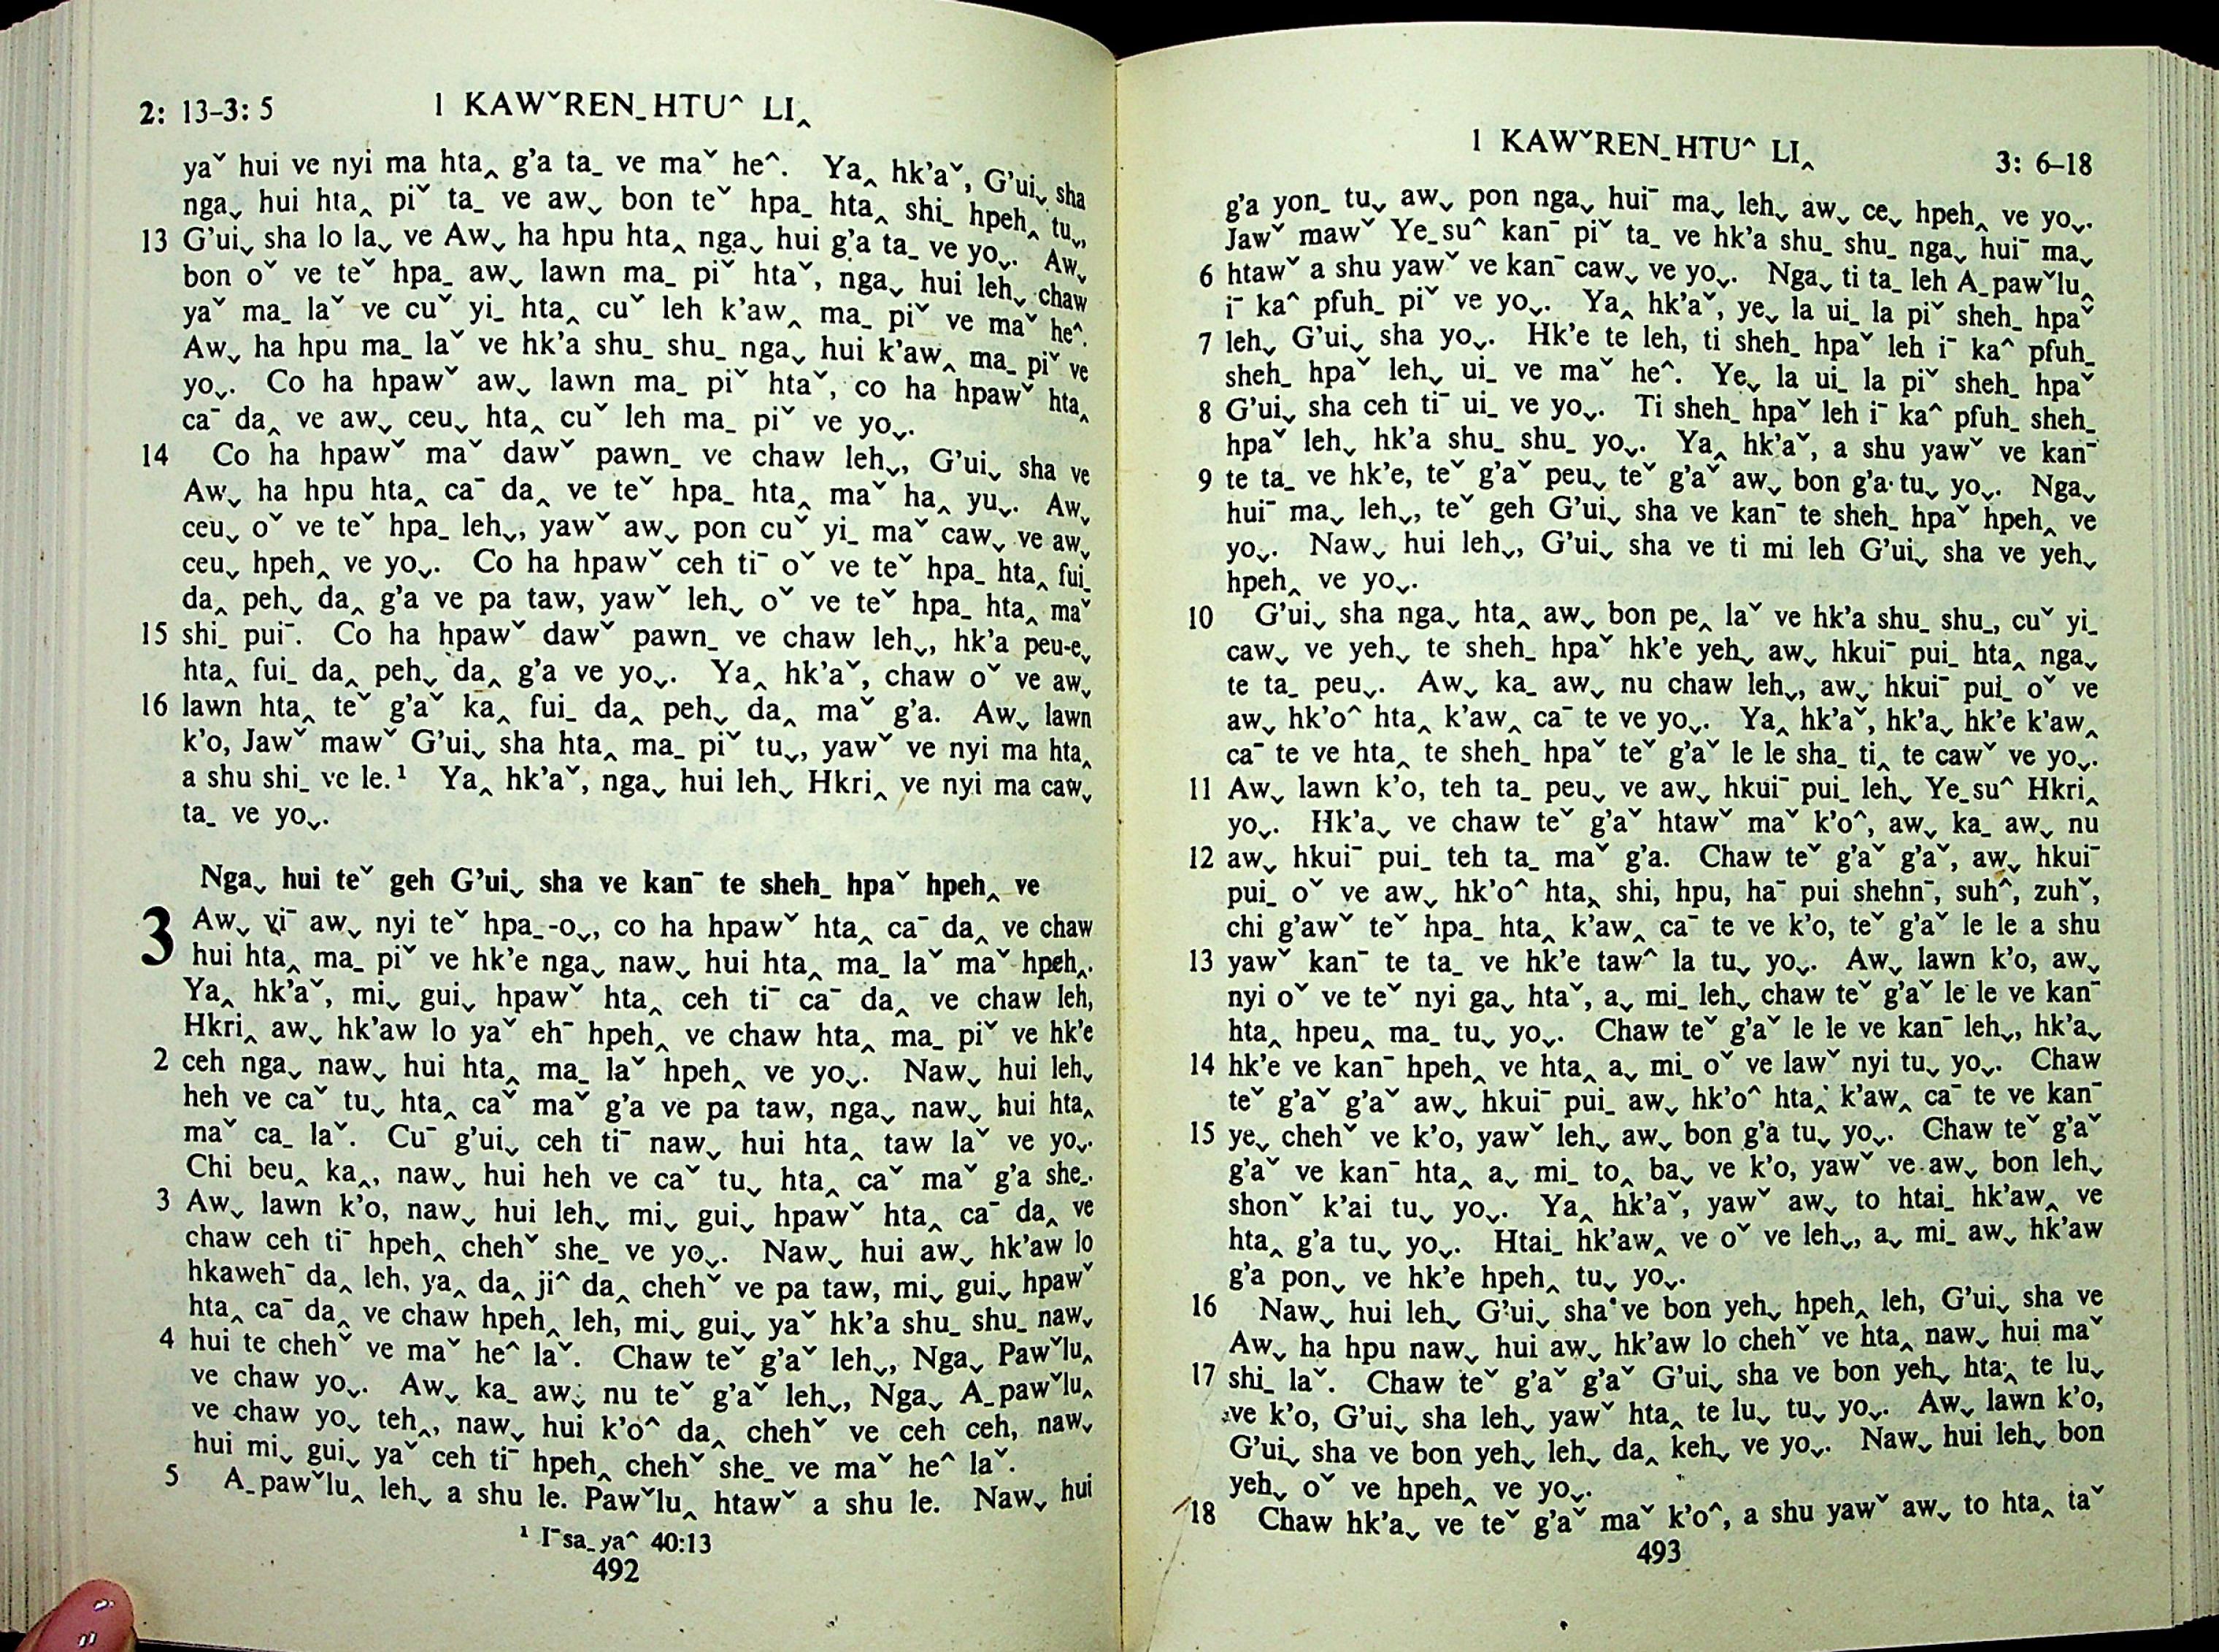 2: 13–3: 5
1 KAWˇREN_HTU^ LI‸
yaˇ hui ve nyi ma hta‸ g’a ta_ ve maˇ he^. Ya‸ hk’aˇ, G’ui⌄ sha
nga⌄ hui hta‸ piˇ ta_ ve aw⌄ bon teˇ hpa_ hta‸ shi_ hpeh‸ tu⌄,
13 G’ui⌄ sha lo la⌄ ve Aw⌄ ha hpu hta‸ nga⌄ hui g’a ta_ ve yo⌄. Aw⌄
bon oˇ ve teˇ hpa_ aw⌄ lawn ma_ piˇ htaˇ, nga⌄ hui leh⌄ chaw
yaˇ ma_ laˇ ve cuˇ yi_ hta‸ cuˇ leh k’aw‸ ma_ piˇ ve maˇ he^.
Aw⌄ ha hpu ma_ laˇ ve hk’a shu_ shu_ nga⌄ hui k’aw‸ ma_ piˇ ve
yo⌄. Co ha hpawˇ aw⌄ lawn ma_ piˇ htaˇ, co ha hpawˇ hta‸
ca¯ da‸ ve aw⌄ ceu⌄ hta‸ cuˇ leh ma_ piˇ ve yo⌄.
14 Co ha hpawˇ maˇ dawˇ pawn_ ve chaw leh⌄, G’ui⌄ sha ve
Aw⌄ ha hpu hta‸ ca¯ da‸ ve teˇ hpa_ hta‸ maˇ ha‸ yu⌄. Aw⌄
ceu⌄ oˇ ve teˇ hpa_ leh⌄, yawˇ aw⌄ pon cuˇ yi_ maˇ caw⌄ ve aw⌄
ceu⌄ hpeh‸ ve yo⌄. Co ha hpawˇ ceh ti¯ oˇ ve teˇ hpa_ hta‸ fui_
da‸ peh⌄ da‸ g’a ve pa taw, yawˇ leh⌄ oˇ ve teˇ hpa_ hta‸ maˇ
15 shi_ pui¯. Co ha hpawˇ dawˇ pawn_ ve chaw leh⌄, hk’a peu-e⌄
hta‸ fui_ da‸ peh⌄ da‸ g’a ve yo⌄. Ya‸ hk’aˇ, chaw oˇ ve aw⌄
16 lawn hta‸ teˇ g’aˇ ka‸ fui_ da‸ peh⌄ da‸ maˇ g’a. Aw⌄ lawn
k’o, Jawˇ mawˇ G’ui⌄ sha hta‸ ma_ piˇ tu⌄, yawˇ ve nyi ma hta‸
a shu shi_ ve le.¹ Ya‸ hk’aˇ, nga⌄ hui leh⌄ Hkri‸ ve nyi ma caw⌄
ta_ ve yo⌄.
Nga⌄ hui teˇ geh G’ui⌄ sha ve kan¯ te sheh_ hpaˇ hpeh‸ ve
3 Aw⌄ vi¯ aw⌄ nyi teˇ hpa_-o⌄, co ha hpawˇ hta‸ ca¯ da‸ ve chaw
hui hta‸ ma_ piˇ ve hk’e nga⌄ naw⌄ hui hta‸ ma_ laˇ maˇ hpeh‸.
Ya‸ hk’aˇ, mi⌄ gui⌄ hpawˇ hta‸ ceh ti¯ ca¯ da‸ ve chaw leh,
Hkri‸ aw⌄ hk’aw lo yaˇ eh¯ hpeh‸ ve chaw hta‸ ma_ piˇ ve hk’e
2 ceh nga⌄ naw⌄ hui hta‸ ma_ laˇ hpeh‸ ve yo⌄. Naw⌄ hui leh⌄
heh ve caˇ tu⌄ hta‸ caˇ maˇ g’a ve pa taw, nga⌄ naw⌄ hui hta‸
maˇ ca_ laˇ. Cu¯ g’ui⌄ ceh ti¯ naw⌄ hui hta‸ taw laˇ ve yo⌄.
Chi beu‸ ka‸, naw⌄ hui heh ve caˇ tu⌄ hta‸ caˇ maˇ g’a she_.
3 Aw⌄ lawn k’o, naw⌄ hui leh⌄ mi⌄ gui⌄ hpawˇ hta‸ ca¯ da‸ ve
chaw ceh ti¯ hpeh‸ chehˇ she_ ve yo⌄. Naw⌄ hui aw⌄ hk’aw lo
hkaweh¯ da‸ leh, ya‸ da‸ ji^ da‸ chehˇ ve pa taw, mi⌄ gui⌄ hpawˇ
hta‸ ca¯ da‸ ve chaw hpeh‸ leh, mi⌄ gui⌄ yaˇ hk’a shu_ shu_ naw⌄
4 hui te chehˇ ve maˇ he^ laˇ. Chaw teˇ g’aˇ leh⌄, Nga⌄ Pawˇlu‸
ve chaw yo⌄. Aw⌄ ka_ aw⌄ nu teˇ g’aˇ leh⌄, Nga⌄ A_pawˇlu‸
ve chaw yo⌄ teh‸, naw⌄ hui k’o^ da‸ chehˇ ve ceh ceh, naw⌄
hui mi⌄ gui⌄ yaˇ ceh ti¯ hpeh‸ chehˇ she_ ve maˇ he^ laˇ.
5 A_pawˇlu‸ leh⌄ a shu le. Pawˇlu‸ htawˇ a shu le. Naw⌄ hui
¹ I¯sa_ya^ 40:13
492
1 KAWˇREN_HTU^ LI‸
3: 6–18
g’a yon_ tu⌄ aw⌄ pon nga⌄ hui¯ ma⌄ leh⌄ aw⌄ ce⌄ hpeh‸ ve yo⌄.
Jawˇ mawˇ Ye_su^ kan¯ piˇ ta_ ve hk’a shu_ shu_ nga⌄ hui¯ ma⌄
6 htawˇ a shu yawˇ ve kan¯ caw⌄ ve yo⌄. Nga⌄ ti ta_ leh A_pawˇlu‸
i¯ ka^ pfuh_ piˇ ve yo⌄. Ya‸ hk’aˇ, ye⌄ la ui_ la piˇ sheh_ hpaˇ
7 leh⌄ G’ui⌄ sha yo⌄. Hk’e te leh, ti sheh_ hpaˇ leh i¯ ka^ pfuh_
sheh_ hpaˇ leh⌄ ui_ ve maˇ he^. Ye⌄ la ui_ la piˇ sheh_ hpaˇ
8 G’ui⌄ sha ceh ti¯ ui_ ve yo⌄. Ti sheh_ hpaˇ leh i¯ ka^ pfuh_ sheh_
hpaˇ leh⌄ hk’a shu_ shu_ yo⌄. Ya‸ hk’aˇ, a shu yawˇ ve kan¯
9 te ta_ ve hk’e, teˇ g’aˇ peu⌄ teˇ g’aˇ aw⌄ bon g’a tu⌄ yo⌄. Nga⌄
hui¯ ma⌄ leh⌄, teˇ geh G’ui⌄ sha ve kan¯ te sheh_ hpaˇ hpeh‸ ve
yo⌄. Naw⌄ hui leh⌄, G’ui⌄ sha ve ti mi leh G’ui⌄ sha ve yeh⌄
hpeh‸ ve yo⌄.
10 G’ui⌄ sha nga⌄ hta‸ aw⌄ bon pe‸ laˇ ve hk’a shu_ shu_, cuˇ yi_
caw⌄ ve yeh⌄ te sheh_ hpaˇ hk’e yeh⌄ aw⌄ hkui¯ pui_ hta‸ nga⌄
te ta_ peu⌄. Aw⌄ ka_ aw⌄ nu chaw leh⌄, aw⌄ hkui¯ pui_ oˇ ve
aw⌄ hk’o^ hta‸ k’aw‸ ca¯ te ve yo⌄. Ya‸ hk’aˇ, hk’a⌄ hk’e k’aw‸
ca¯ te ve hta‸ te sheh_ hpaˇ teˇ g’aˇ le le sha_ ti‸ te cawˇ ve yo⌄.
11 Aw⌄ lawn k’o, teh ta_ peu⌄ ve aw⌄ hkui¯ pui_ leh⌄ Ye_su^ Hkri‸
yo⌄. Hk’a⌄ ve chaw teˇ g’aˇ htawˇ maˇ k’o^, aw⌄ ka_ aw⌄ nu
12 aw⌄ hkui¯ pui_ teh ta_ maˇ g’a. Chaw teˇ g’aˇ g’aˇ, aw⌄ hkui¯
pui_ oˇ ve aw⌄ hk’o^ hta‸ shi, hpu, ha¯ pui shehn¯, suh^, zuhˇ,
chi g’awˇ teˇ hpa_ hta‸ k’aw‸ ca¯ te ve k’o, teˇ g’aˇ le le a shu
13 yawˇ kan¯ te ta_ ve hk’e taw^ la tu⌄ yo⌄. Aw⌄ lawn k’o, aw⌄
nyi oˇ ve teˇ nyi ga⌄ htaˇ, a⌄ mi_ leh⌄ chaw teˇ g’aˇ le le ve kan¯
hta‸ hpeu⌄ ma_ tu⌄ yo⌄. Chaw teˇ g’aˇ le le ve kan¯ leh⌄, hk’a⌄
14 hk’e ve kan¯ hpeh‸ ve hta‸ a⌄ mi_ oˇ ve lawˇ nyi tu⌄ yo⌄. Chaw
teˇ g’aˇ g’aˇ aw⌄ hkui¯ pui_ aw⌄ hk’o^ hta‸ k’aw‸ ca¯ te ve kan¯
15 ye⌄ chehˇ ve k’o, yawˇ leh⌄ aw⌄ bon g’a tu⌄ yo⌄. Chaw teˇ g’aˇ
g’aˇ ve kan¯ hta‸ a⌄ mi_ to‸ ba⌄ ve k’o, yawˇ ve aw⌄ bon leh⌄
shonˇ k’ai tu⌄ yo⌄. Ya‸ hk’aˇ, yawˇ aw⌄ to htai_ hk’aw‸ ve
hta‸ g’a tu⌄ yo⌄. Htai_ hk’aw‸ ve oˇ ve leh⌄, a⌄ mi_ aw⌄ hk’aw
g’a pon⌄ ve hk’e hpeh‸ tu⌄ yo⌄.
16 Naw⌄ hui leh⌄ G’ui⌄ sha ve bon yeh⌄ hpeh‸ leh, G’ui⌄ sha ve
Aw⌄ ha hpu naw⌄ hui aw⌄ hk’aw lo chehˇ ve hta‸ naw⌄ hui maˇ
17 shi_ laˇ. Chaw teˇ g’aˇ g’aˇ G’ui⌄ sha ve bon yeh⌄ hta‸ te lu⌄
ve k’o, G’ui⌄ sha leh⌄ yawˇ hta‸ te lu⌄ tu⌄ yo⌄. Aw⌄ lawn k’o,
G’ui⌄ sha ve bon yeh⌄ leh⌄ da⌄ keh⌄ ve yo⌄. Naw⌄ hui leh⌄ bon
yeh⌄ oˇ ve hpeh‸ ve yo⌄.
18 Chaw hk’a⌄ ve teˇ g’aˇ maˇ k’o^, a shu yawˇ aw⌄ to hta‸ taˇ
493